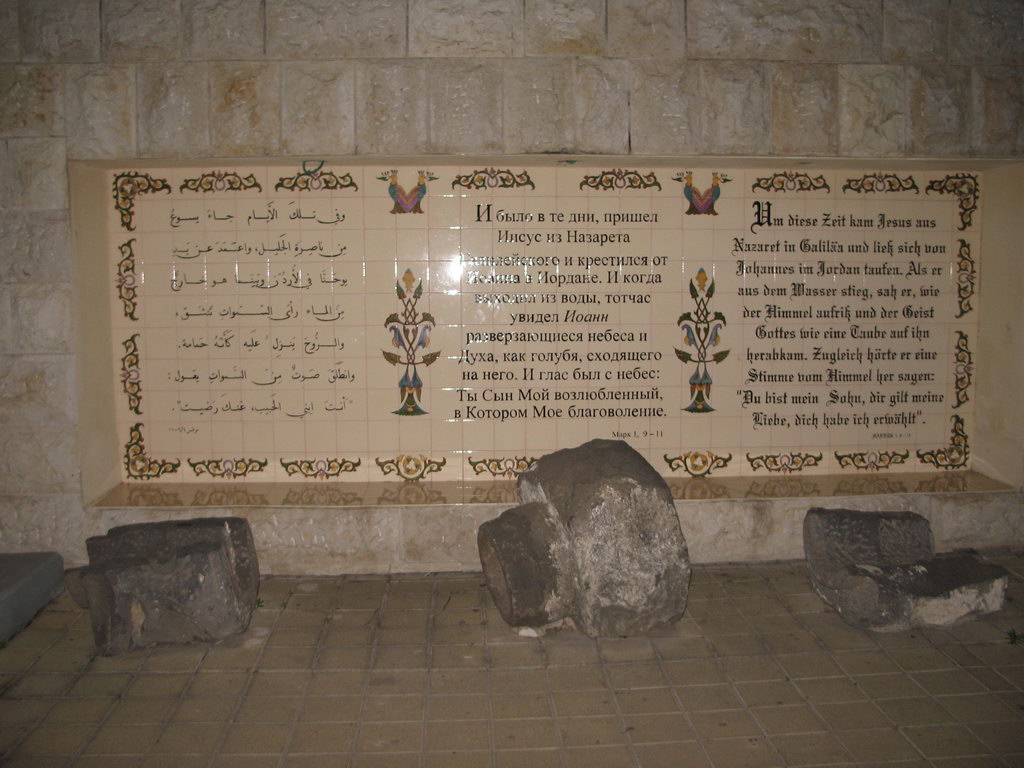 وفي تلك الأيام جاء يسوع
من ناصرة الجليل، واعتمد عن يد
يوحنا في الأردن وبينما هو خارج
من الماء رأى السموات تنشق،
والروح ينزل عليه كأنه حمامة.
وانطلق صوت من السموات يقول:
"أنت ابني الحبيب، عنك رضيت".
И было в те дни, пришел
Иисус из Назарета
Галилейского и крестился от
Иоанна в Иордане. И когда
выходил из воды, тотчас
увидел Иоанн
разверзающиеся небеса и
Духа, как голубя, сходящего
на него. И глас был с небес:
Ты Сын Мой возлюбленный,
в Котором Мое благоволение.
Марк 1, 9-11
Um diese Zeit kam Jesus aus
Nazaret in Galiläa und ließ sich von
Johannes im Jordan taufen. Als er
aus dem Wasser stieg, sah er, wie
der Himmel aufriß und der Geist
Gottes wie eine Taube auf ihn
herabkam. Zugleich hörte er eine
Stimme vom Himmel her sagen:
"Du bist mein Sohn, dir gilt meine
Liebe, dich habe ich erwählt".